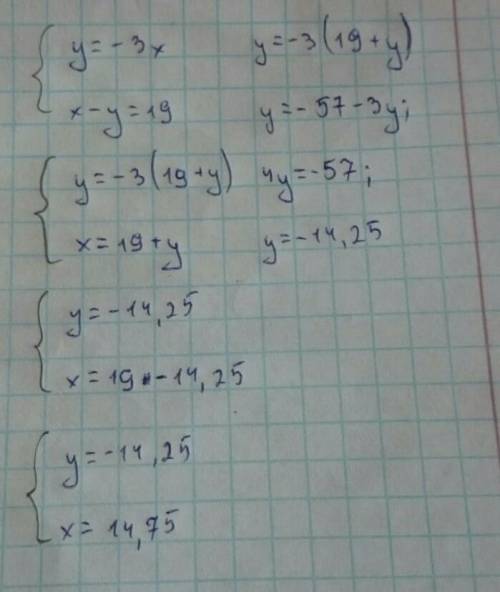 y = -3x
x - y = 19
y = -3(19 + y)
x = 19 + y
y = -3(19 + y)
y = -57 - 3y;
4y = -57;
y = -14,25
y = -14,25
x = 19 - 14,25
y = -14,25
x = 14,75